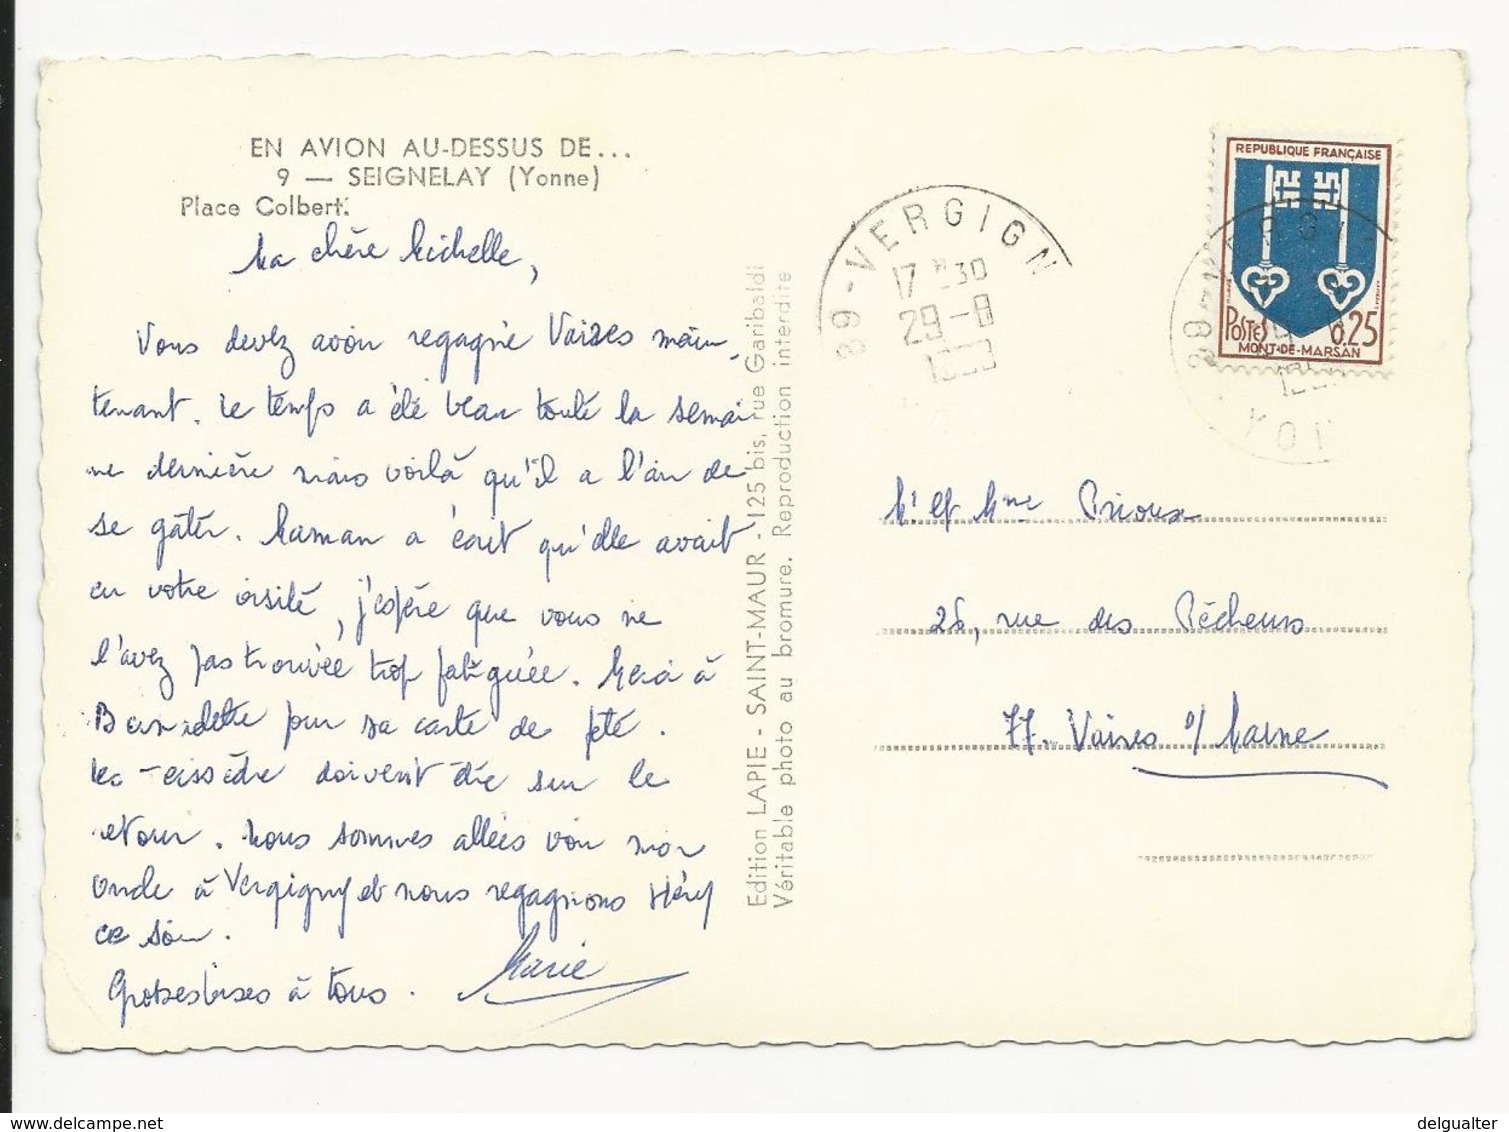 EN AVION AU-DESSUS DE...
9 — SEIGNELAY (Yonne)
Place Colbert.
Ma chère Michelle,
Vous devez avoir regagné Vaires main-
tenant. Le temps a été beau toute la semai-
ne dernière mais voilà qu'il a l'air de
se gâter. Maman a écrit qu'elle avait
eu votre visite, j'espère que vous ne
l'avez pas trouvée trop fatiguée. Merci à
Bernadette pour sa carte de fête.
doivent être sur le
retour. Nous sommes allées voir mon
oncle à Vergigny et nous regagnons Héry
ce soir.
Grosses bises à tous.
Marie
Edition LAPIE - SAINT-MAUR - 125 bis, rue Garibaldi
Véritable photo au bromure. Reproduction interdite
89 - VERGIGN
17 H 30
29 - 8
REPUBLIQUE FRANÇAISE
POSTES 0,25
MONT-DE-MARSAN
Mr et Mme Prioux
26, rue des Pêcheurs
77. Vaires s/ Marne
delgualter